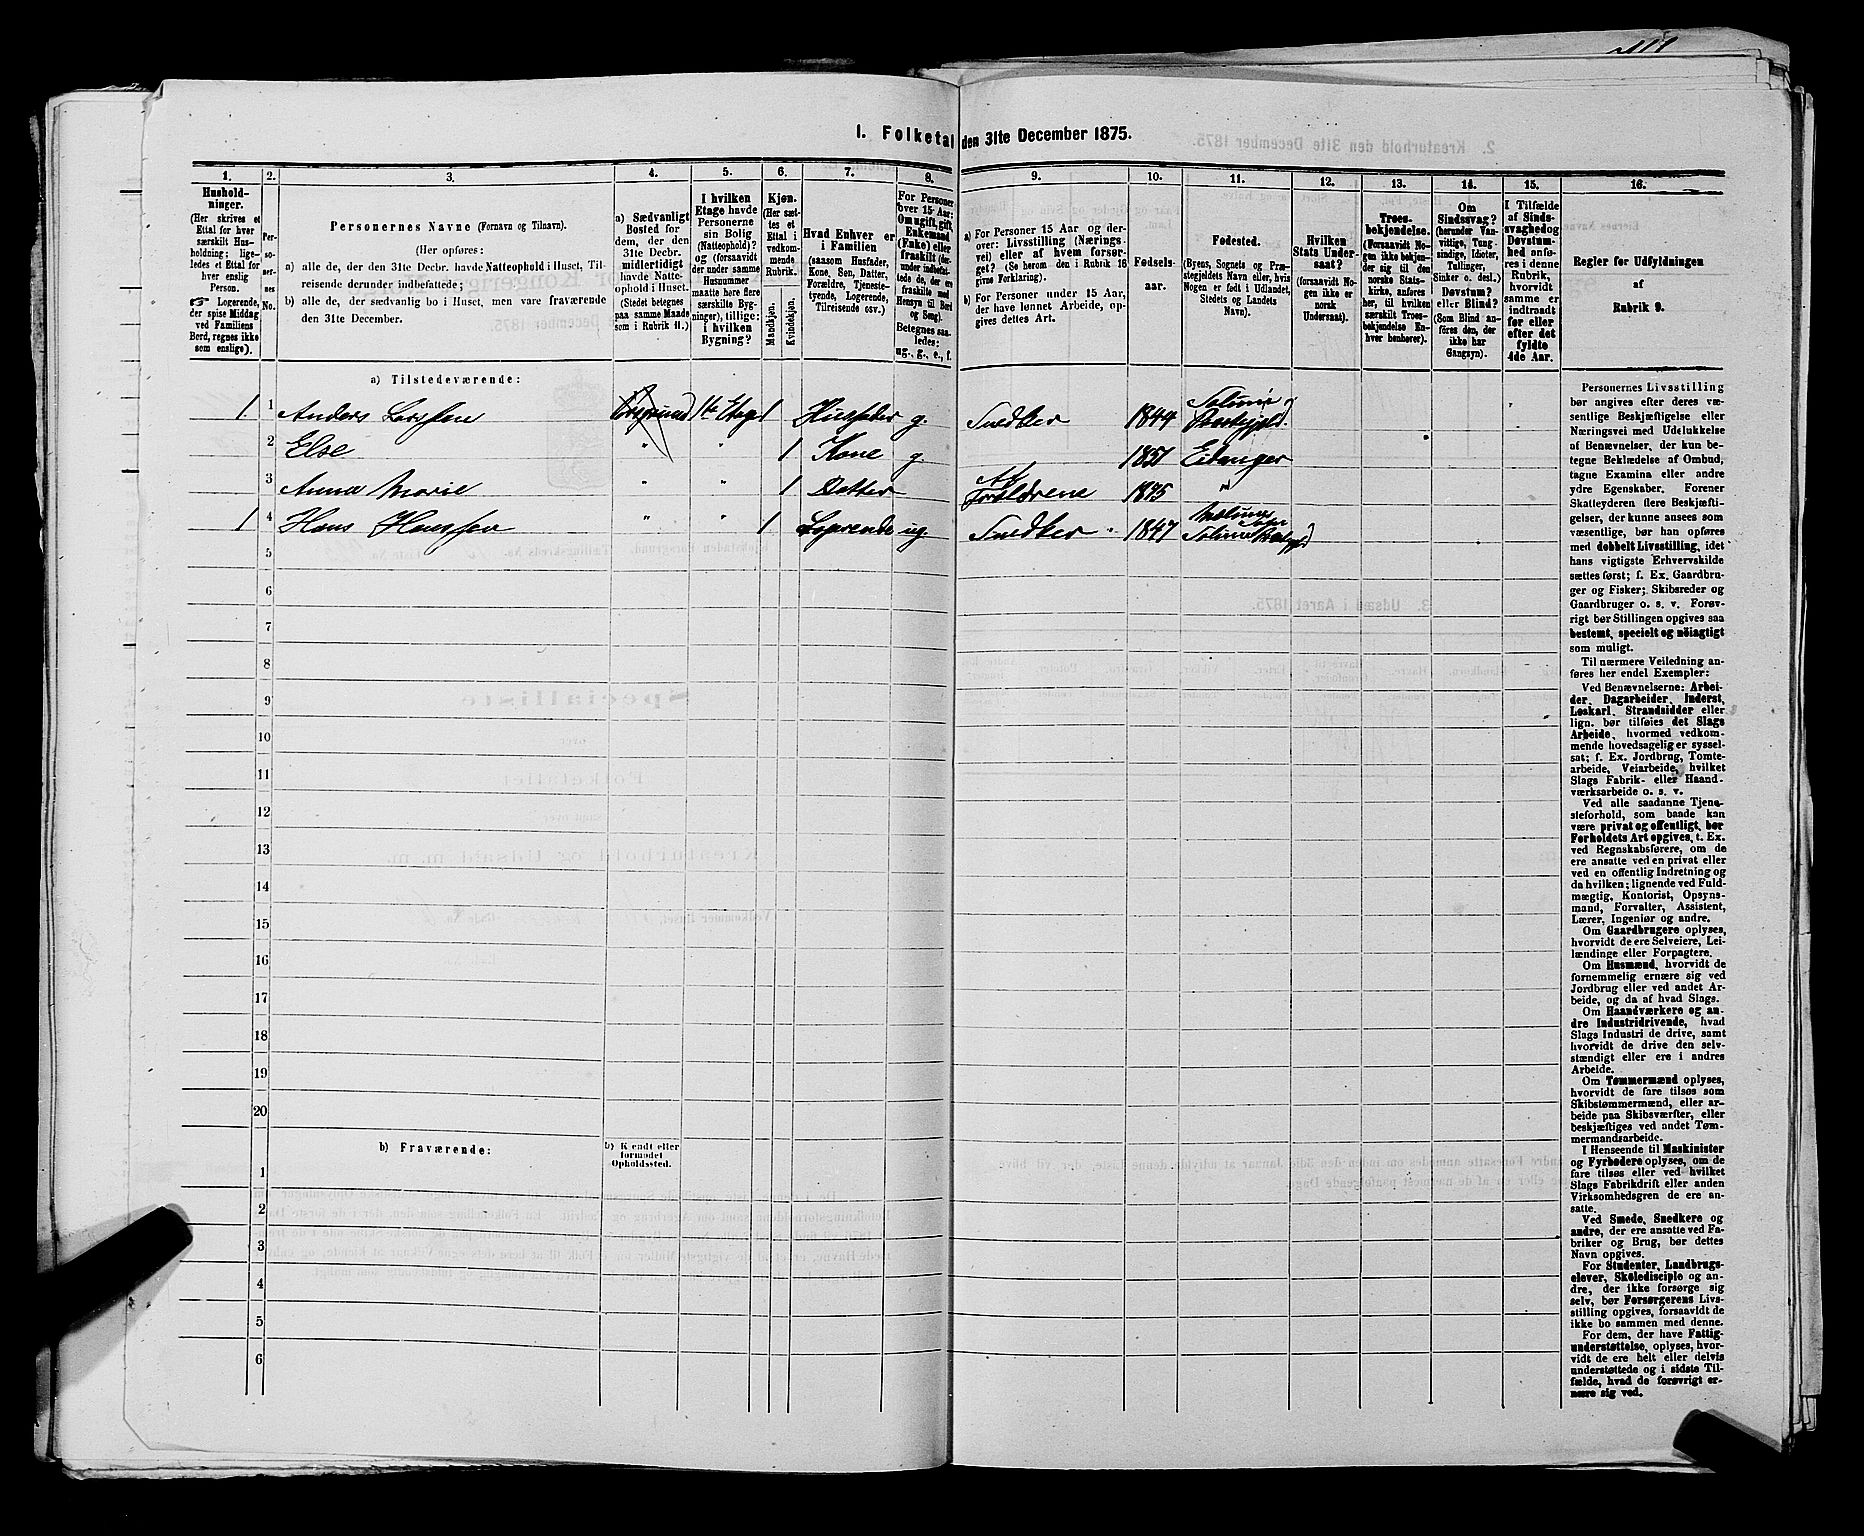 1. Folketal den 31te December 1875.
1. 2. 3. 4. 5. 6. 7. 8. 9. 10. 11. 12. 13. 14. 15. 16.
Husholdninger.
(Her skrives et
Ettal for hver
særskilt Husholdning;
ligeledes et Ettal for
hver enslig
Person.
☞ Logerende,
der spise Middag
ved Familiens
Bord, regnes ikke
som enslige).
Personernes No.
Personernes Navne (Fornavn og Tilnavn).
(Her opføres:
a) alle de, der den 31te Decbr. havde Natteophold i Huset, Tilreisende derunder indbefattede;
b) alle de, der sædvanlig bo i Huset, men vare fraværende
den 31te December.
a) Sædvanligt
Bosted for
dem, der den
31te Decbr.
midlertidigt
havde Natteophold i Huset.
(Stedet betegnes
paa samme Maade
som i Rubrik 11.)
I hvilken
Etage havde
Personerne
sin Bolig
(Natteophold)?
og (forsaavidt
der under samme
Husnummer
maatte høre flere
særskilte Bygninger), tillige:
i hvilken
Bygning?
Kjøn.
(Her sættes et
Ettal i
vedkommende
Rubrik.)
Mandkjøn.
Kvindekjøn.
Hvad Enhver er
i Familien
(saasom Husfader,
Kone, Søn, Datter,
Forældre, Tjenestetyende, Logerende,
Tilreisende osv.)
For Personer
over 15 Aar:
Om ugift, gift,
Enkemand
(Enke) eller
fraskilt (derunder indbefattede de, der ere
fraskilte med
Hensyn til Bord
og Seng).
Betegnes saaledes:
ug., g., e., f.
a) For Personer 15 Aar og derover: Livsstilling (Næringsvei) eller af hvem forsørget? (Se herom den i Rubrik 16
givne Forklaring).
b) For Personer under 15 Aar,
der have lønnet Arbeide, opgives dettes Art.
Fødselsaar.
Fødested.
(Byens, Sognets og Præstegjeldets Navn eller, hvis
Nogen er født i Udlandet,
Stedets og Landets
Navn).
Hvilken
Stats Undersaat?
(forsaavidt Nogen ikke er
norsk
Undersaat).
Troesbekjendelse.
(Forsaavidt Nogen ikke bekjender sig til den
norske Statskirke, anføres
her, til hvilken
særskilt Troesbekjendelse Enhver henhører).
Om
Sindssvag?
(herunder Vanvittige, Tungsindige, Idioter,
Tullinger,
Sinker o. desl.)
Døvstum?
eller Blind?
(Som Blind anføres den, der
ikke har
Gangsyn).
I Tilfælde
af Sindssvaghed og
Døvstumhed anføres i denne
Rubrik,
hvorvidt
samme er
indtraadt
før eller
efter det
fyldte
4de Aar.
Regler for Udfyldningen
af
Rubrik 9.
a) Tilstedeværende:
1 1 Anders Larssen Porsgrund 1te Etage 1 Husfader g. Snedker 1844 Solum Præstegjeld.
2 Else " " 1 Kone g. 1851 Eidanger
3 Anna Marie " " 1 Datter Af Forældrene 1875 "
1 4 Hans Hanssen " " 1 Logerende ug. Snedker 1847 Solum
5
6
7
8
9
10
11
12
13
14
15
16
17
18
19
20
b) Fraværende:
b) Kjendt eller
formodet
Opholdssted.
1
2
3
4
5
6
Personernes Livsstilling
bør angives efter deres væsentlige Beskjæftigelse eller
Næringsvei med Udelukkelse
af Benævnelser, der kun betegne Beklædelse af Ombud,
tagne Examina eller andre
ydre Egenskaber. Forener
Skatteyderen flere Beskjæftigelser, der kunne ansees som
væsentlige, bør han opføres
med dobbelt Livsstilling, idet
hans vigtigste Erhvervskilde
sættes først; f. Ex. Gaardbruger og Fisker; Skibsreder og
Gaardbruger o. s. v. Forøvrigt bør Stillingen opgives saa
bestemt, specielt og nøiagtigt
som muligt.
Til nærmere Veiledning anføres her endel Exempler:
Ved Benævnelserne: Arbeider, Dagarbeider, Inderst,
Løskarl, Strandsidder eller
lign. bør tilføies det Slags
Arbeide, hvormed vedkommende hovedsagelig er sysselsat; f. Ex. Jordbrug, Tomtearbeide, Veiarbeide, hvilket
Slags Fabrik- eller Haandværksarbeide o. s. v.
Ved alle saadanne Tjenesteforhold, som baade kan
være privat og offentligt, bør
Forholdets Art opgives, t. Ex.
ved Regnskabsførere, om de
ere ansatte ved en privat eller
ved en offentlig Indretning og
da hvilken; lignende ved Fuldmægtig, Kontorist, Opsynsmand, Forvalter, Assistent,
Lærer, Ingeniør og andre.
Om Gaardbrugere oplyses,
hvorvidt de ere Selveiere, Leilændinge eller Forpagtere.
Om Husmænd, hvorvidt de
fornemmelig ernære sig ved
Jordbrug eller ved andet Arbeide, og da af hvad Slags.
Om Haandværkere og andre Industridrivende, hvad
Slags Industri de drive, samt
hvorvidt de drive den selvstændigt eller ere i andres
Arbeide.
Om Tømmermænd oplyses,
hvorvidt de fare tilsøs som
Skibstømmermænd, eller arbeide paa Skibsværfter, eller
beskjæftiges ved andet Tømmermandsarbeide.
I Henseende til Maskinister
og Fyrbødere oplyses, om de
fare tilsøs eller ved hvilket
Slags Fabrikdrift eller anden
Virksomhedsgren de ere ansatte.
Ved Smede, Snedkere og
andre, der ere ansatte ved Fabriker og Brug, bør dettes
Navn opgives.
For Studenter, Landbrugselever, Skoledisciple og andre, der ikke forsørge sig
selv, bør Forsørgerens Livsstilling opgives, forsaavidt de
ikke bo sammen med denne.
For dem, der have Fattigunderstøttelse, oplyses, hvorvidt de ere helt eller delvis
understøttede og i sidste Tilfælde, hvad de forøvrigt ernære sig ved.